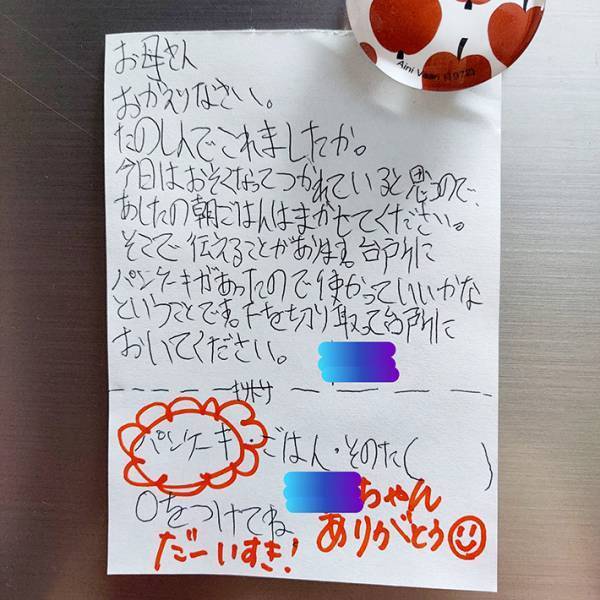 お母さん
おかえりなさい。
たのしんでこれましたか。
今日はおそくなってつかれていると思うので、
あしたの朝ごはんはまかせてください。
そこで伝えることがあります。台所に
パンケーキがあったので使かっていいかな
ということです。下を切り取って台所に
おいてください。
キリトリ
パンケーキ・ごはん・そのた(　　)
○をつけてね
ちゃん
ありがとう
だーいすき!
Aini